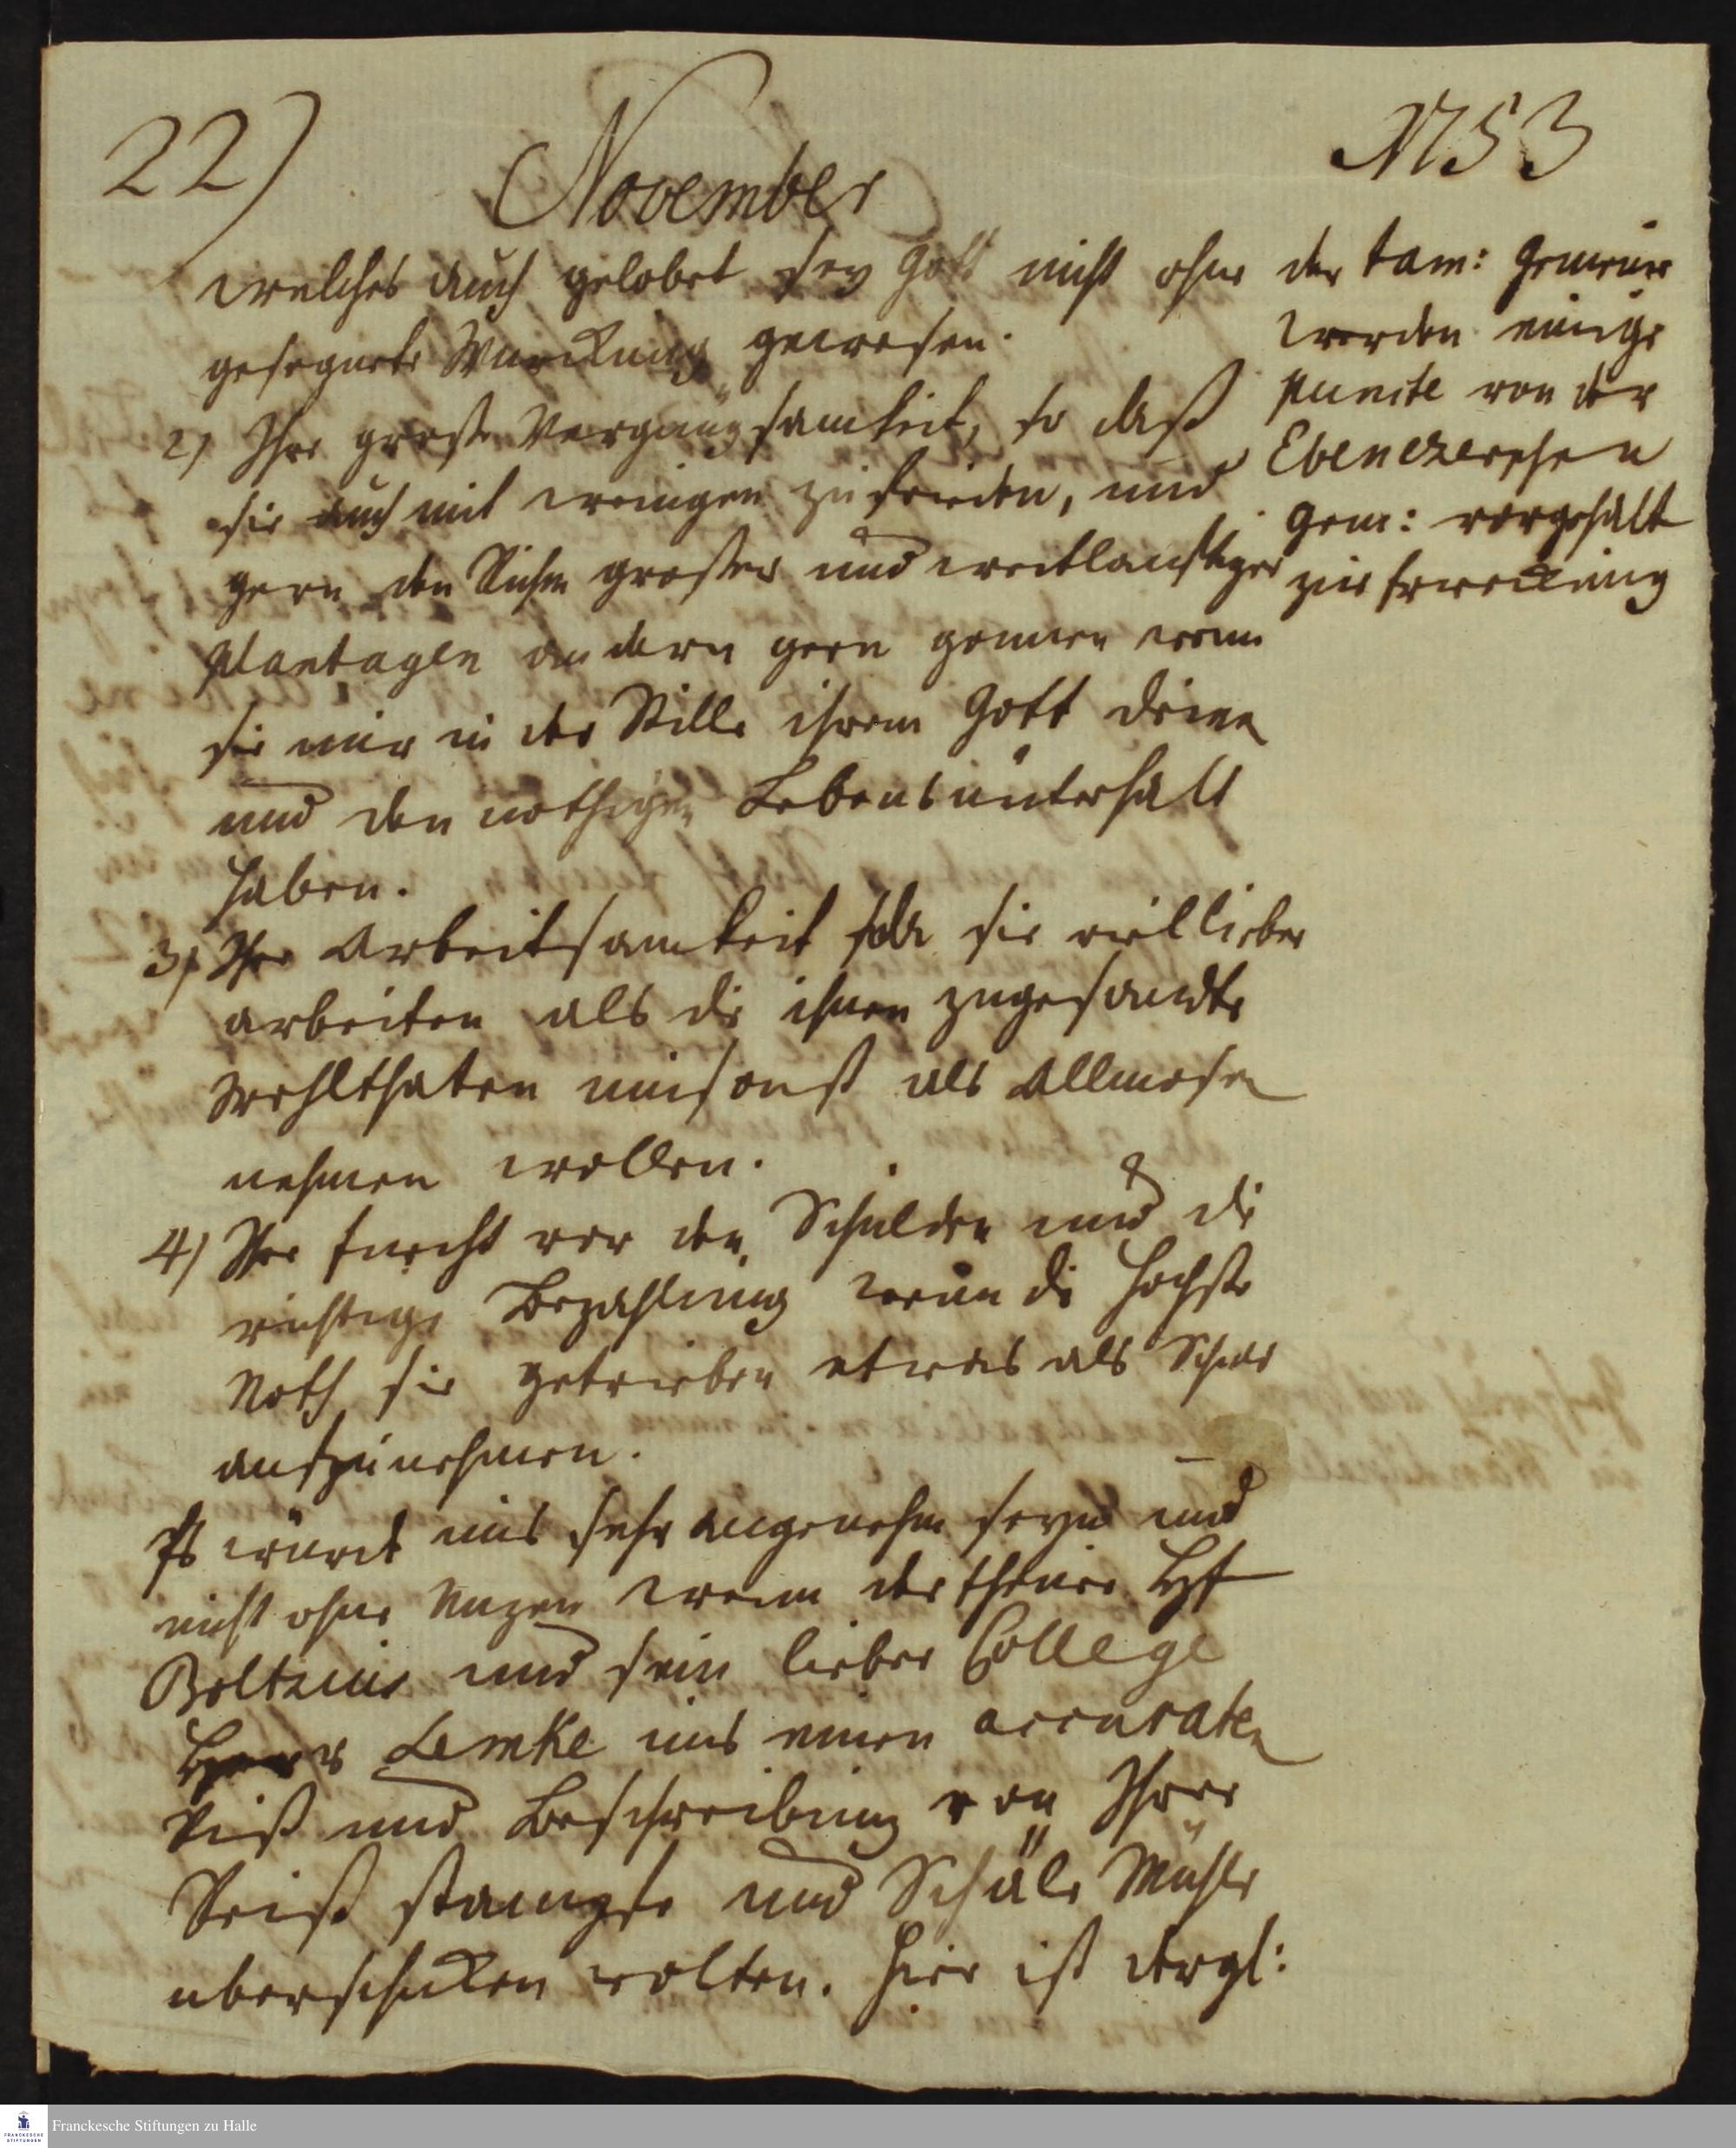 22)
November
1753
welches auch gelobet sey Gott nicht ohne
gesegnete Würckung gewesen.
2) Ihre große Vergnügsamkeit, so daß
sie auch mit wenigen zufrieden, und
gern den Ruhm großer und weitlauftiger
Plantagen andern gern gönnen wenn
sie nur in der Stille ihrem Gott dienen
und den nothigen Lebensunterhalt
haben.
3) Ihre Arbeitsamkeit da sie viel lieber
arbeiten als die ihnen zugesandte
Wohlthaten umsonst als Allmosen
nehmen wollen.
4) Ihre Furcht vor den Schulden und die
richtige Bezahlung wenn die hochste
Noth sie getrieben etwas als Schuld
aufzunehmen.
Es würde uns sehr angenehm seyn und
nicht ohne Nuzen wenn der theure H
Boltzius und sein lieber College
Herr Lemke uns einen accuraten
Riß und Beschreibung von Ihrer
Reiß stampfe und Schäle Mühle
uberschicken wolten. Hier ist dergl:
der tam: Gemeine
werden einige
puncte von der
Ebenezerschen
Gem: vorgehalt
zur Erweckung
Franckesche Stiftungen zu Halle